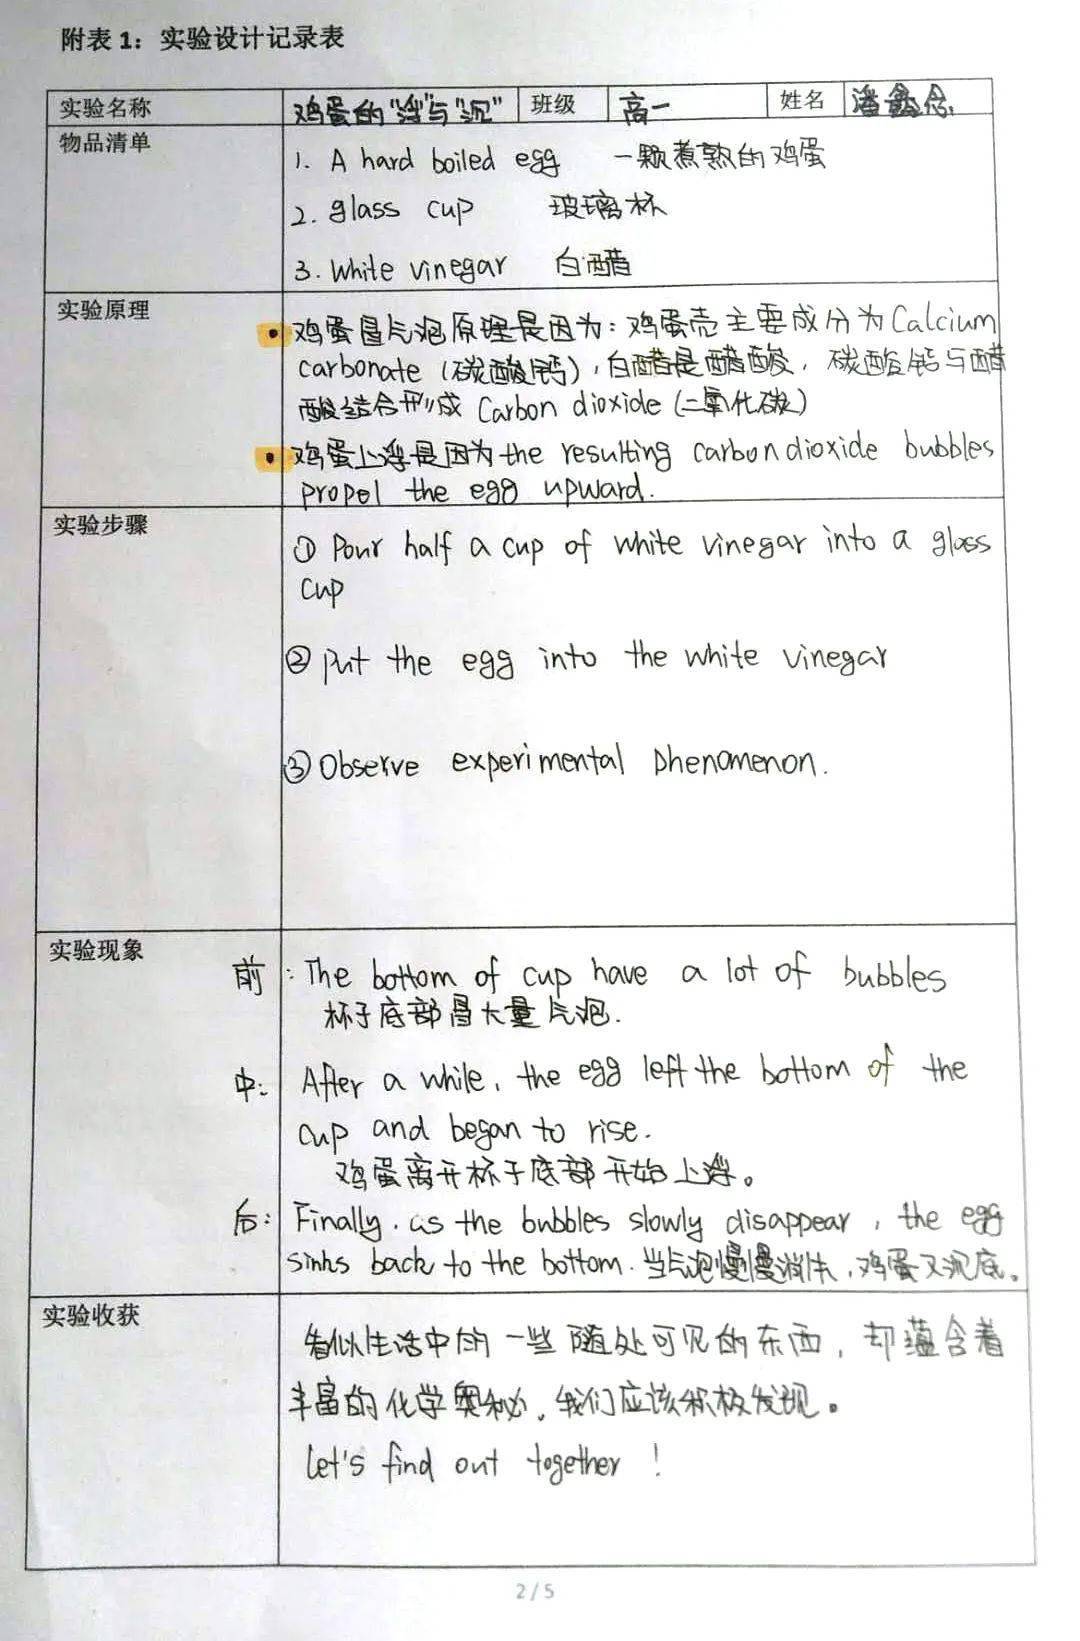 附表 1：实验设计记录表
实验名称 鸡蛋的"浮"与"沉" 班级 高一 姓名 潘鑫念
物品清单
1. A hard boiled egg 一颗煮熟的鸡蛋
2. glass cup 玻璃杯
3. White vinegar 白醋
实验原理
• 鸡蛋冒气泡原理是因为：鸡蛋壳主要成分为Calcium
carbonate (碳酸钙)，白醋是醋酸，碳酸钙与醋
酸结合形成 Carbon dioxide (二氧化碳)
• 鸡蛋上浮是因为the resulting carbon dioxide bubbles
propel the egg upward.
实验步骤
① Pour half a cup of white vinegar into a glass
cup
② put the egg into the white vinegar
③ Observe experimental phenomenon.
实验现象
前：The bottom of cup have a lot of bubbles
杯子底部冒大量气泡.
中：After a while, the egg left the bottom of the
cup and began to rise.
鸡蛋离开杯子底部开始上浮。
后：Finally, as the bubbles slowly disappear, the egg
sinks back to the bottom. 当气泡慢慢消失，鸡蛋又沉底。
实验收获
看似生活中的一些随处可见的东西，却蕴含着
丰富的化学奥秘，我们应该积极发现。
Let's find out together!
2 / 5